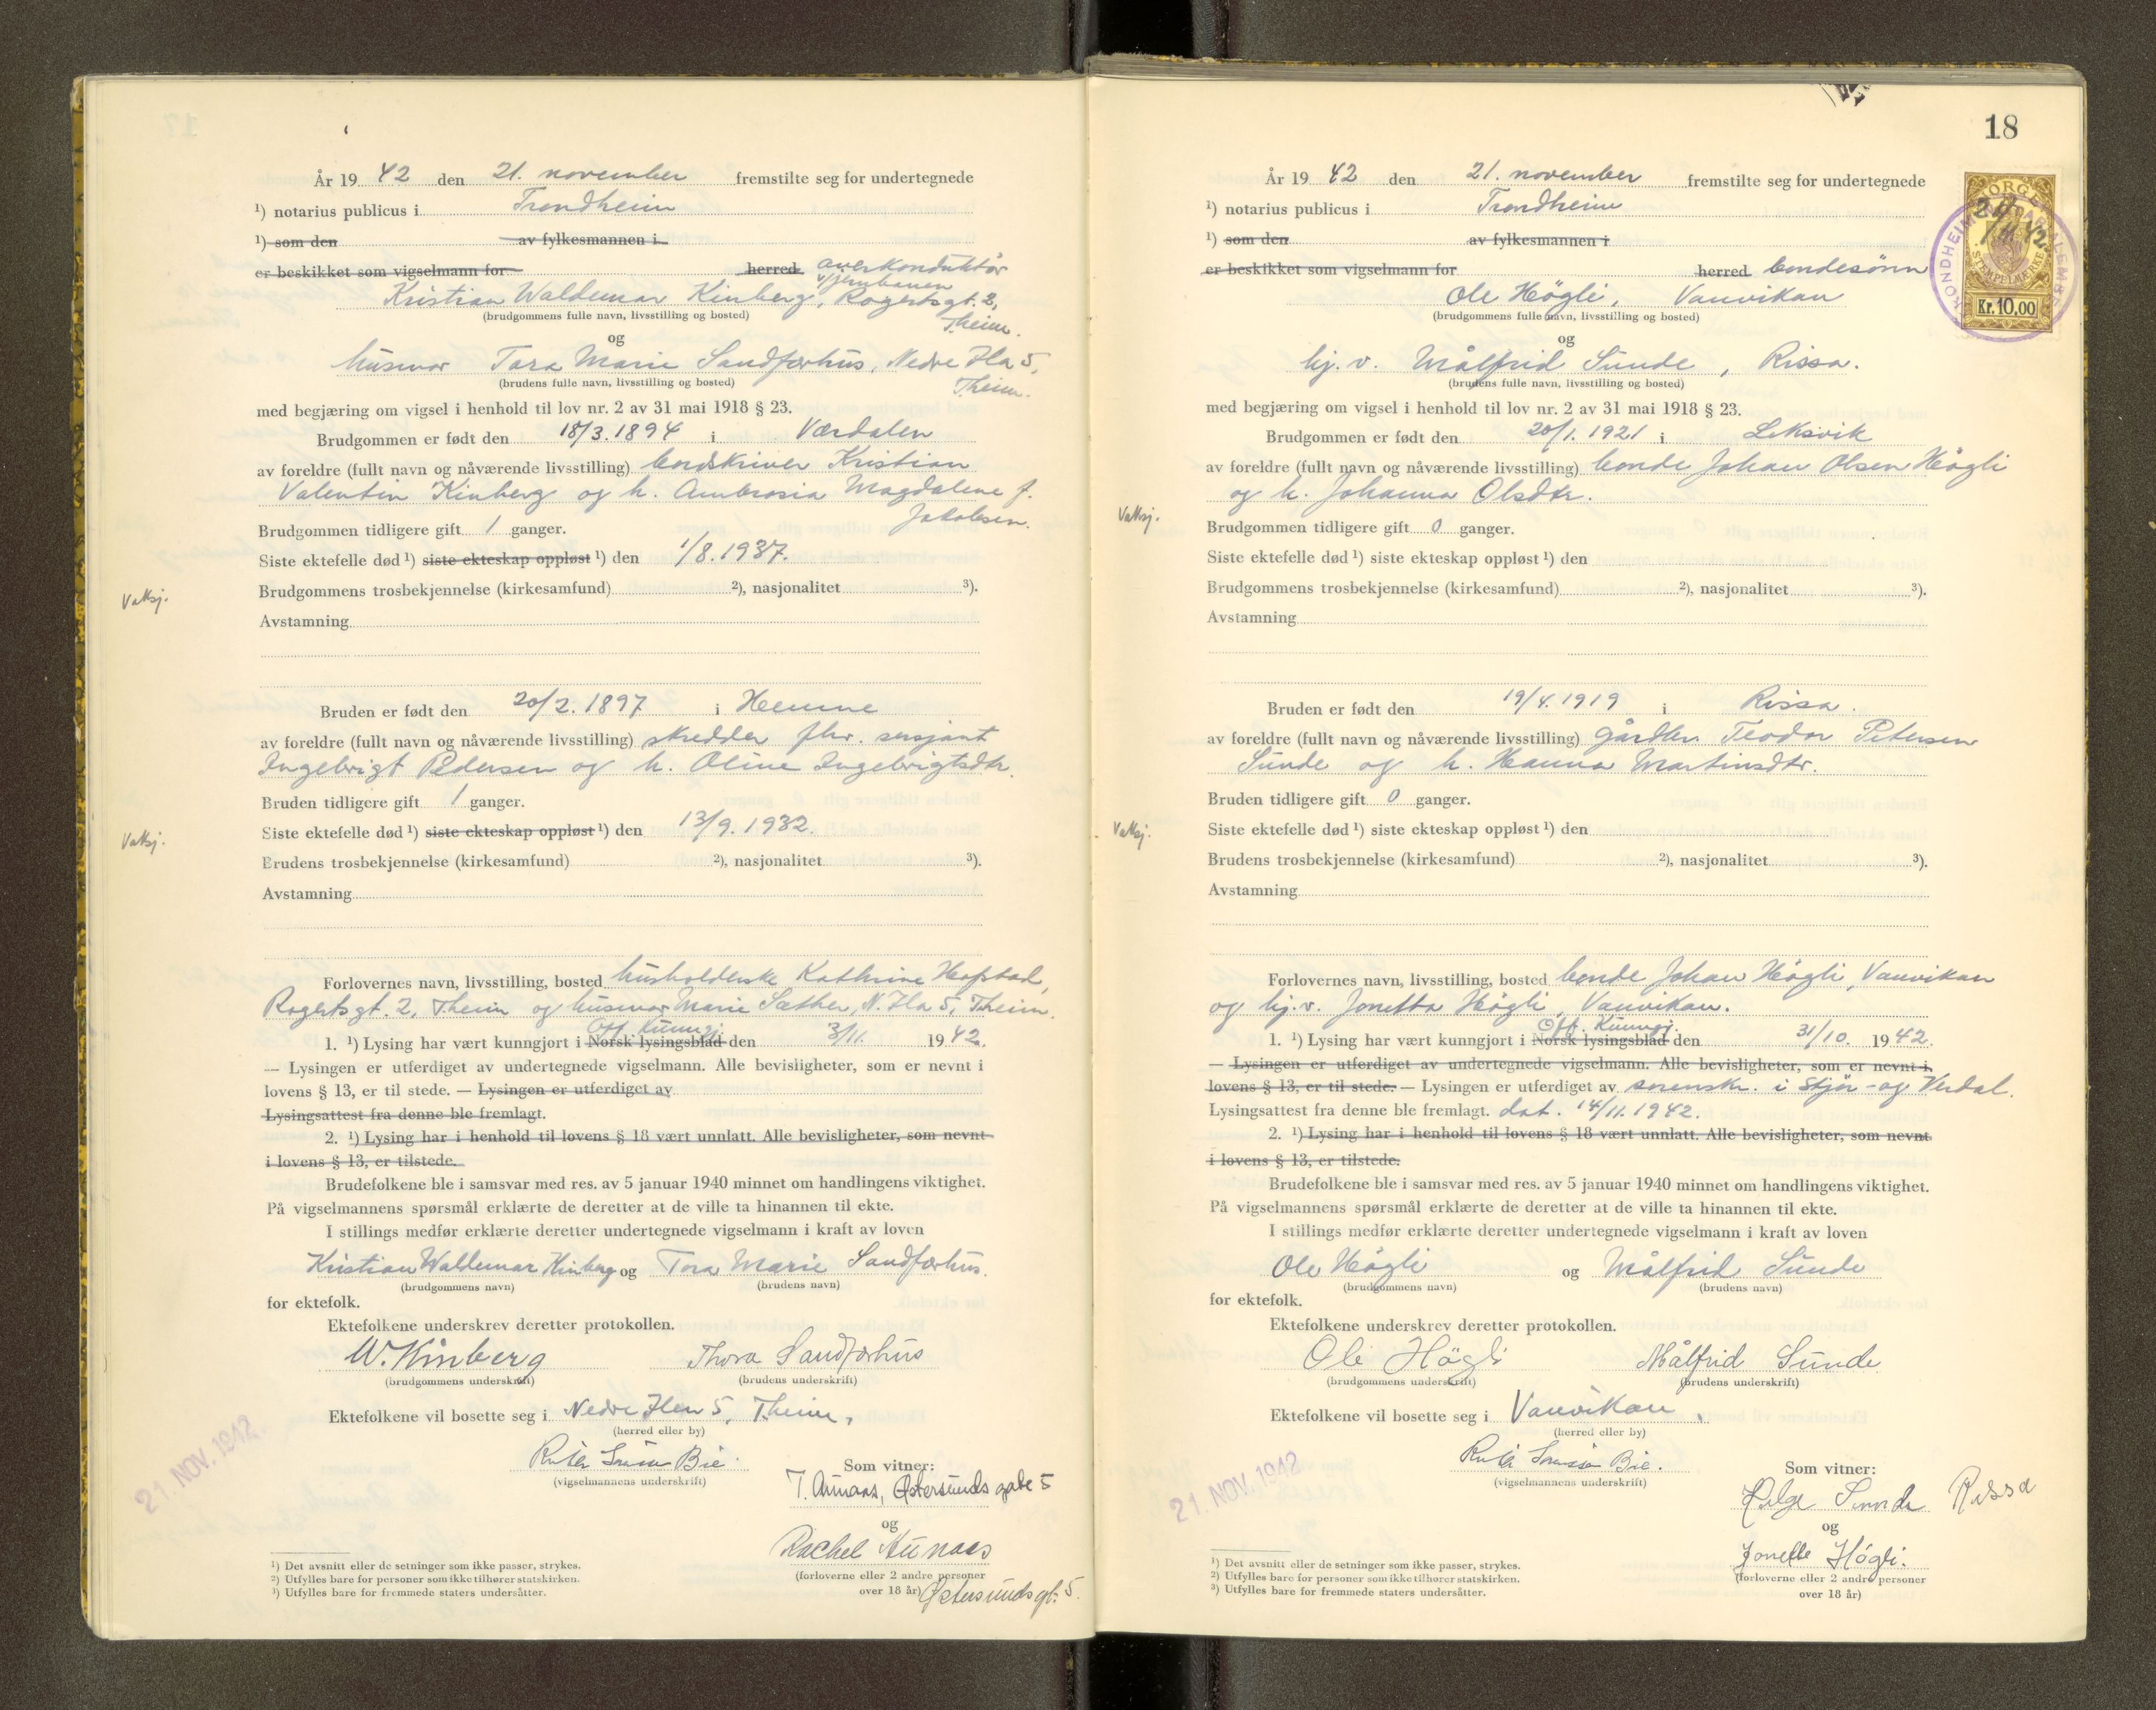 År 19 42 den 21. november fremstilte seg for undertegnede
¹) notarius publicus i Trondheim
¹) som den av fylkesmannen i
er beskikket som vigselmann for herred overkonduktør
v/jernbanen
Kristian Waldemar Kinberg, Rogertsgt. 2,
(brudgommens fulle navn, livsstilling og bosted)
Theim.
og
husmor Tora Marie Sandførhus, Nedre Ila 5,
(brudens fulle navn, livsstilling og bosted)
Theim.
med begjæring om vigsel i henhold til lov nr. 2 av 31 mai 1918 § 23.
Brudgommen er født den 18/3. 1894 i Værdalen
av foreldre (fullt navn og nåværende livsstilling) bordskriver Kristian
Valentin Kinberg og h. Ambrosia Magdalene f.
Jakobsen.
Brudgommen tidligere gift 1 ganger.
Siste ektefelle død ¹) siste ekteskap oppløst ¹) den 1/8. 1937.
Vaksj.
Brudgommens trosbekjennelse (kirkesamfund) ²), nasjonalitet ³).
Avstamning
Bruden er født den 20/2. 1897 i Hemne
av foreldre (fullt navn og nåværende livsstilling) skredder fhv. sersjant
Ingebrigt Pedersen og h. Oline Ingebrigtsdtr.
Bruden tidligere gift 1 ganger.
Siste ektefelle død ¹) siste ekteskap oppløst ¹) den 13/9. 1932.
Vaksj.
Brudens trosbekjennelse (kirkesamfund) ²), nasjonalitet ³).
Avstamning
Forlovernes navn, livsstilling, bosted husholderske Kathrine Hopstad,
Rogertsgt. 2, Theim og husmor Marie Sæther, N. Ila 5, Theim.
Off. Kunngj.
1. ¹) Lysing har vært kunngjort i Norsk lysingsblad den 3/11. 1942.
— Lysingen er utferdiget av undertegnede vigselmann. Alle bevisligheter, som er nevnt i
lovens § 13, er til stede. — Lysingen er utferdiget av
Lysingsattest fra denne ble fremlagt.
2. ¹) Lysing har i henhold til lovens § 18 vært unnlatt. Alle bevisligheter, som nevnt
i lovens § 13, er tilstede.
Brudefolkene ble i samsvar med res. av 5 januar 1940 minnet om handlingens viktighet.
På vigselmannens spørsmål erklærte de deretter at de ville ta hinannen til ekte.
I stillings medfør erklærte deretter undertegnede vigselmann i kraft av loven
Kristian Waldemar Kinberg og Tora Marie Sandførhus.
(brudgommens navn) (brudens navn)
for ektefolk.
Ektefolkene underskrev deretter protokollen.
W. Kinberg Thora Sandførhus
(brudgommens underskrift) (brudens underskrift)
Ektefolkene vil bosette seg i Nedre Ilen 5, Theim,
(herred eller by)
21. NOV. 1942
Bie
(vigselmannens underskrift)
Som vitner:
T. Aunaas, Østersunds gate 5
og
Rachel Aunaas
(forloverne eller 2 andre personer
over 18 år) Østersundsgt. 5.
¹) Det avsnitt eller de setninger som ikke passer, strykes.
²) Utfylles bare for personer som ikke tilhører statskirken.
³) Utfylles bare for fremmede staters undersåtter.
18
NORGE
21/11 42
STEMPELMERKE
Kr. 10,00
År 19 42 den 21. november fremstilte seg for undertegnede
¹) notarius publicus i Trondheim
¹) som den av fylkesmannen i
er beskikket som vigselmann for herred bondesønn
Ole Högli, Vanvikan
(brudgommens fulle navn, livsstilling og bosted)
og
hj. v. Målfrid Sunde, Rissa.
(brudens fulle navn, livsstilling og bosted)
med begjæring om vigsel i henhold til lov nr. 2 av 31 mai 1918 § 23.
Brudgommen er født den 20/1. 1921 i Leksvik
av foreldre (fullt navn og nåværende livsstilling) bonde Johan Olsen Högli
og h. Johanna Olsdtr.
Vaksj.
Brudgommen tidligere gift 0 ganger.
Siste ektefelle død ¹) siste ekteskap oppløst ¹) den
Brudgommens trosbekjennelse (kirkesamfund) ²), nasjonalitet ³).
Avstamning
Bruden er født den 19/4. 1919 i Rissa.
av foreldre (fullt navn og nåværende livsstilling) gårdbr. Teodor Petersen
Sunde og h. Hanna Martinsdtr.
Bruden tidligere gift 0 ganger.
Vaksj.
Siste ektefelle død ¹) siste ekteskap oppløst ¹) den
Brudens trosbekjennelse (kirkesamfund) ²), nasjonalitet ³).
Avstamning
Forlovernes navn, livsstilling, bosted bonde Johan Högli, Vanvikan
og hj. v. Jonetta Högli, Vanvikan.
Off. Kunngj.
1. ¹) Lysing har vært kunngjort i Norsk lysingsblad den 31/10. 1942.
— Lysingen er utferdiget av undertegnede vigselmann. Alle bevisligheter, som er nevnt i,
lovens § 13, er til stede. — Lysingen er utferdiget av sorenskr. i Stjør- og Verdal.
Lysingsattest fra denne ble fremlagt. dat. 14/11. 1942.
2. ¹) Lysing har i henhold til lovens § 18 vært unnlatt. Alle bevisligheter, som nevnt
i lovens § 13, er tilstede.
Brudefolkene ble i samsvar med res. av 5 januar 1940 minnet om handlingens viktighet.
På vigselmannens spørsmål erklærte de deretter at de ville ta hinannen til ekte.
I stillings medfør erklærte deretter undertegnede vigselmann i kraft av loven
Ole Högli og Målfrid Sunde
(brudgommens navn) (brudens navn)
for ektefolk.
Ektefolkene underskrev deretter protokollen.
Ole Högli Målfrid Sunde
(brudgommens underskrift) (brudens underskrift)
Ektefolkene vil bosette seg i Vanvikan.
(herred eller by)
21. NOV. 1942
Bie.
(vigselmannens underskrift)
Som vitner:
Helge Sunde Rissa
og
Jonette Högli.
(forloverne eller 2 andre personer
over 18 år)
¹) Det avsnitt eller de setninger som ikke passer, strykes.
²) Utfylles bare for personer som ikke tilhører statskirken.
³) Utfylles bare for fremmede staters undersåtter.